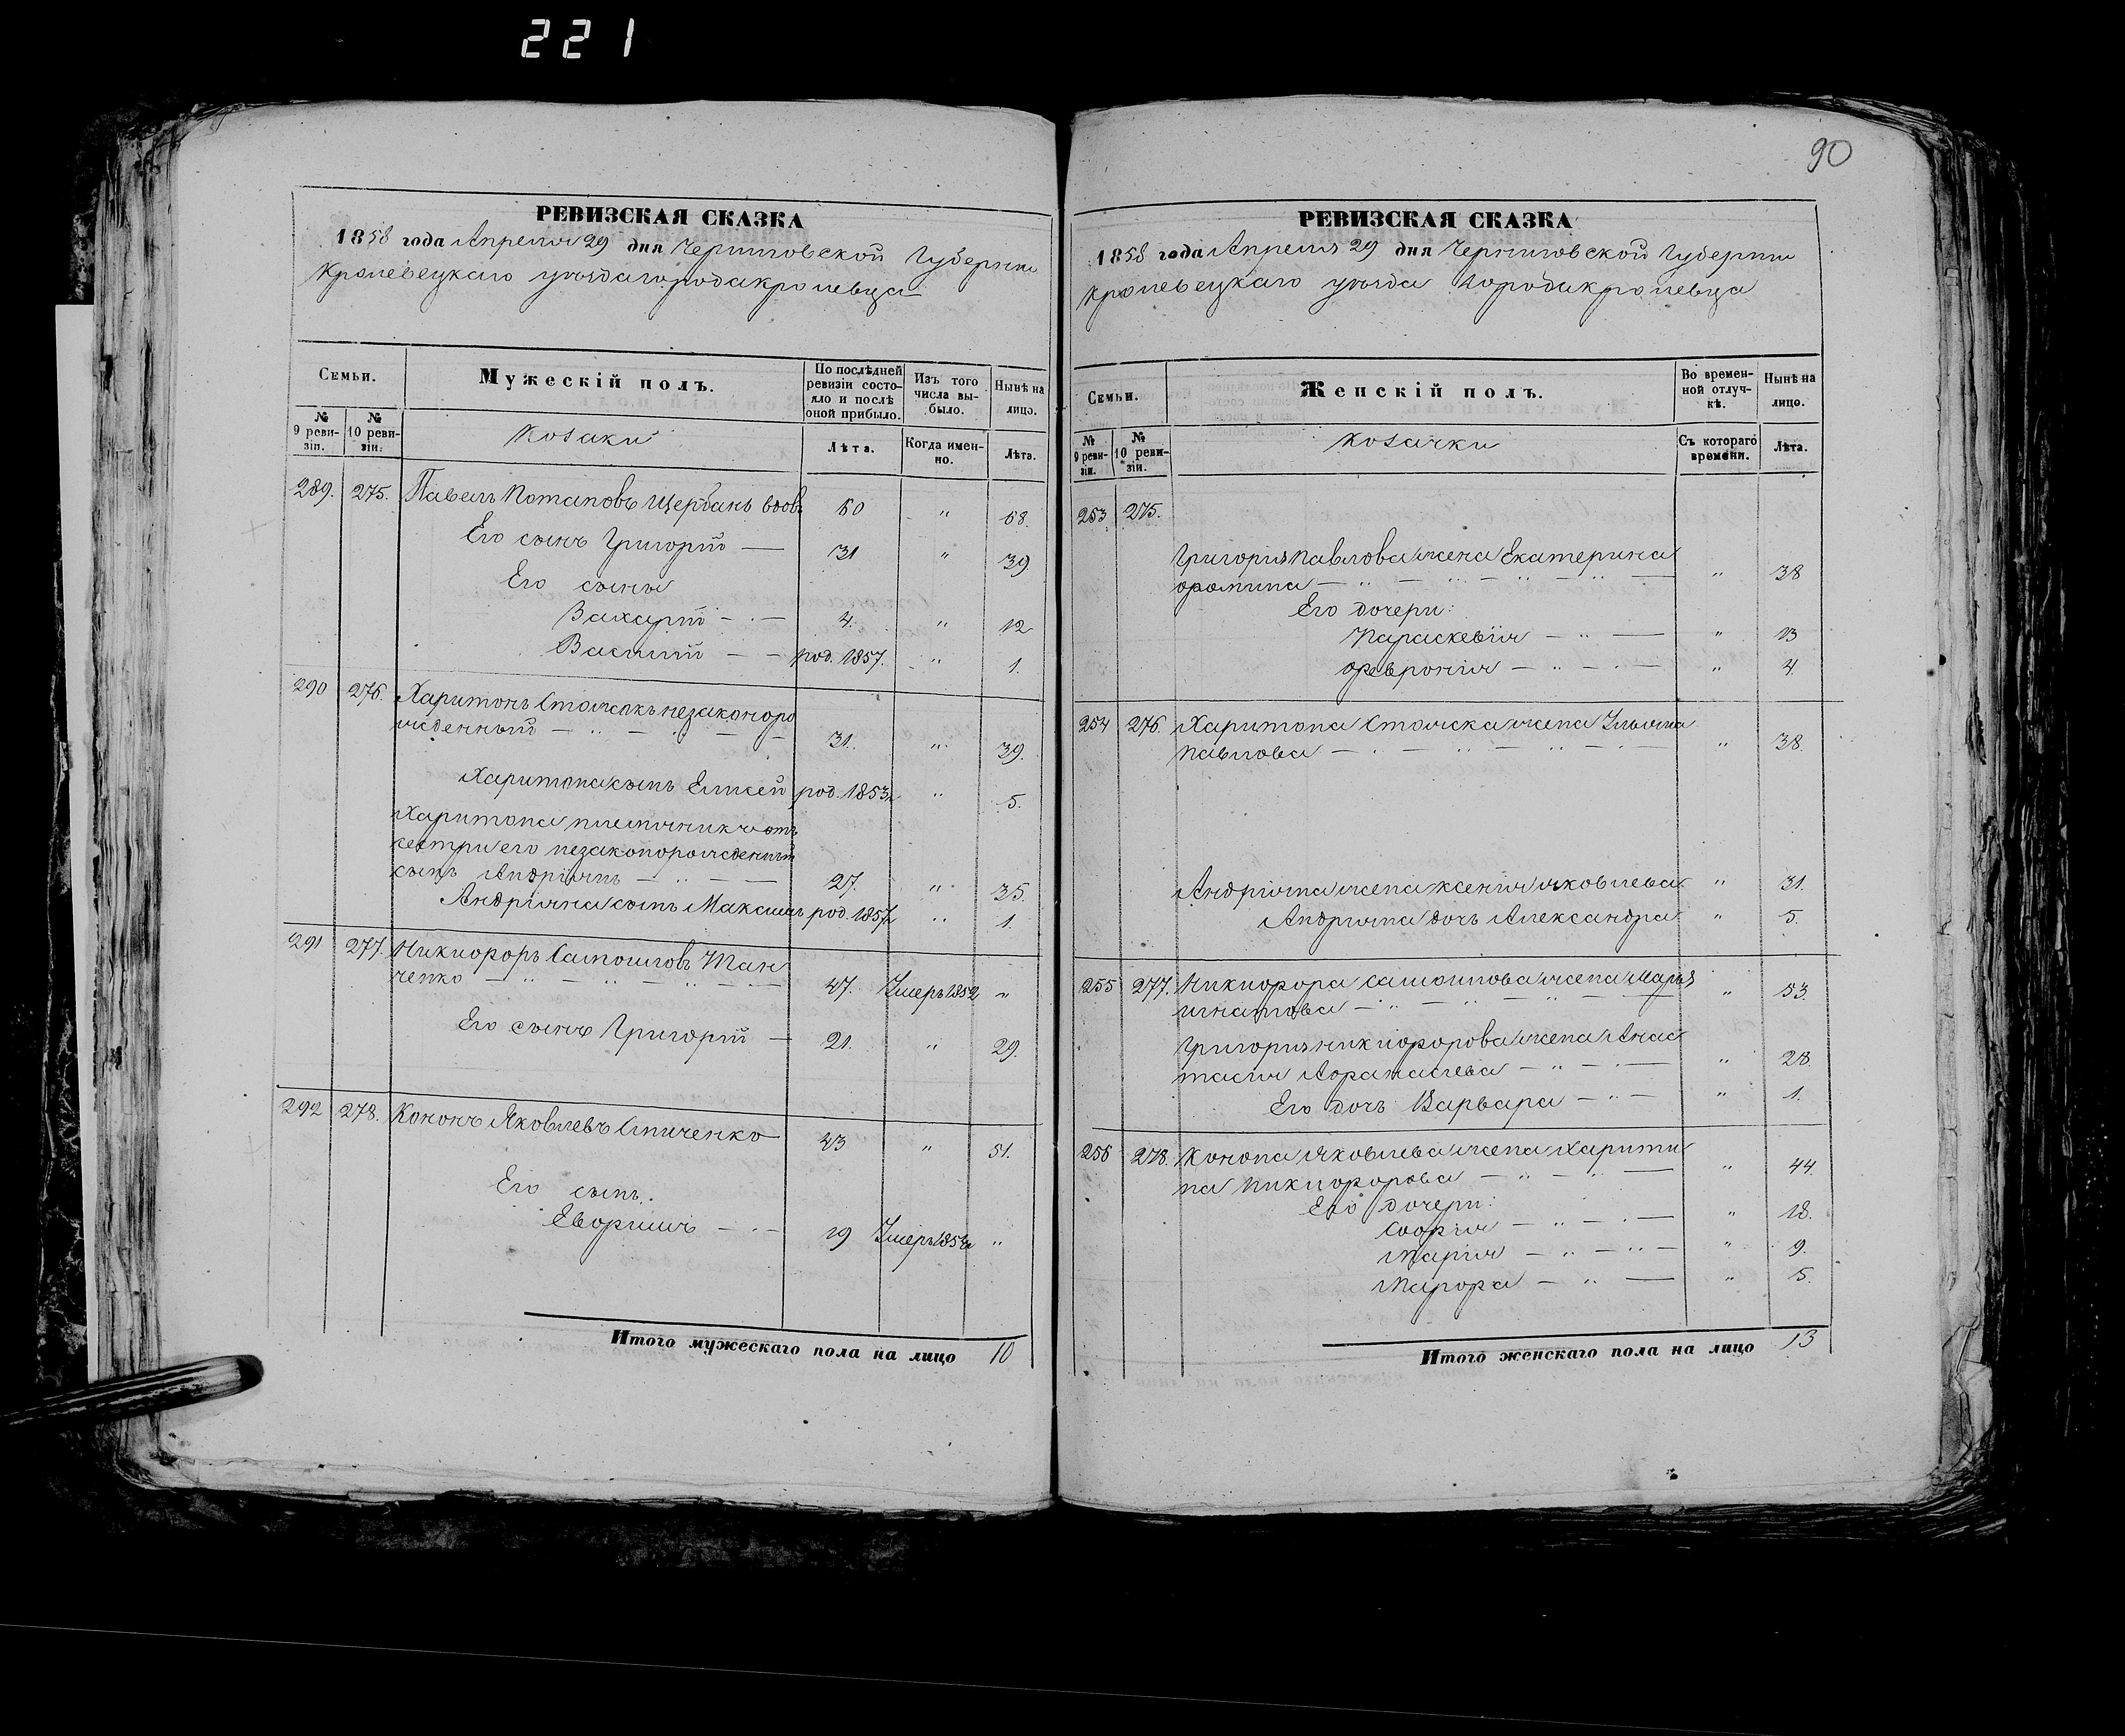 221
РЕВИЗСКАЯ СКАЗКА
1858 года Апреля 29 дня Черниговской Губернии
Кролевецкаго уѣзда города кролевца
Семьи.
Мужескій полъ.
По послѣдней ревизіи состояло и послѣ оной прибыло.
Изъ того числа выбыло.
Нынѣ на лицо.
№ 9 ревизіи.
№ 10 ревизіи.
Козаки
Лѣта.
Когда именно.
Лѣта.
289. 275. Павелъ Потаповъ Щербань вдовъ 60 " 68.
Его сынъ Григорій — 31 " 39
Его сыны
Захарій — · — 4. " 12
Василій — — род. 1857. " 1.
290 276. Харитонъ Стожокъ незаконоро
жденный — " — " — — 31. " 39.
Харитона сынъ Елисей род. 1853 " 5.
Харитона племянникъ отъ
сестры его незаконорожденный
сынъ Андріянъ — " — — 27. " 35.
Андріяна сынъ Максимъ род. 1857 " 1.
291 277. Никифоръ Самойловъ Ман
ченко — " — " — " — 47. Умеръ 1852 "
Его сынъ Григорій — 21. " 29.
292 278. Кононъ Яковлевъ Спиченко 43 " 51.
Его сынъ.
Евфимъ — · — 19 Умеръ "
Итого мужескаго пола на лицо 10
90
РЕВИЗСКАЯ СКАЗКА
1858 года Апреля 29 дня Черниговской Губернии
Кролевецкаго уѣзда города кролевца
Семьи.
Женскій полъ.
Во временной отлучкѣ.
Нынѣ на лицо.
№ 9 ревизіи.
№ 10 ревизіи.
козачки
Съ котораго времени.
Лѣта.
253 275.
Григорія Павлова жена Екатерина
Фомина — " — " — " — " — " 38
Его дочери:
Параскевія — " — " 13
Февронія — " — · — " 4.
254 276. Харитона Стожка жена Ульяна
Павлова — · — " — " — · — " 38.
Андріяна жена Ксенія Яковлева " 31.
Андріяна дочь Александра " 5.
255 277. Никифора Самойлова жена Марья
Игнатова — " — " — " — " 53.
Григорія Никифорова жена Анас
тасія Афанасіева — " — · — " 28.
Его дочь Варвара — " — " 1.
256 278. Конона Яковлева жена Харити
на Никифорова — " — " — " 44.
Его дочери:
Софія — " — · — " 18.
Марія — " — " — " 9.
Марфа — " — " 5.
Итого женскаго пола на лицо 13